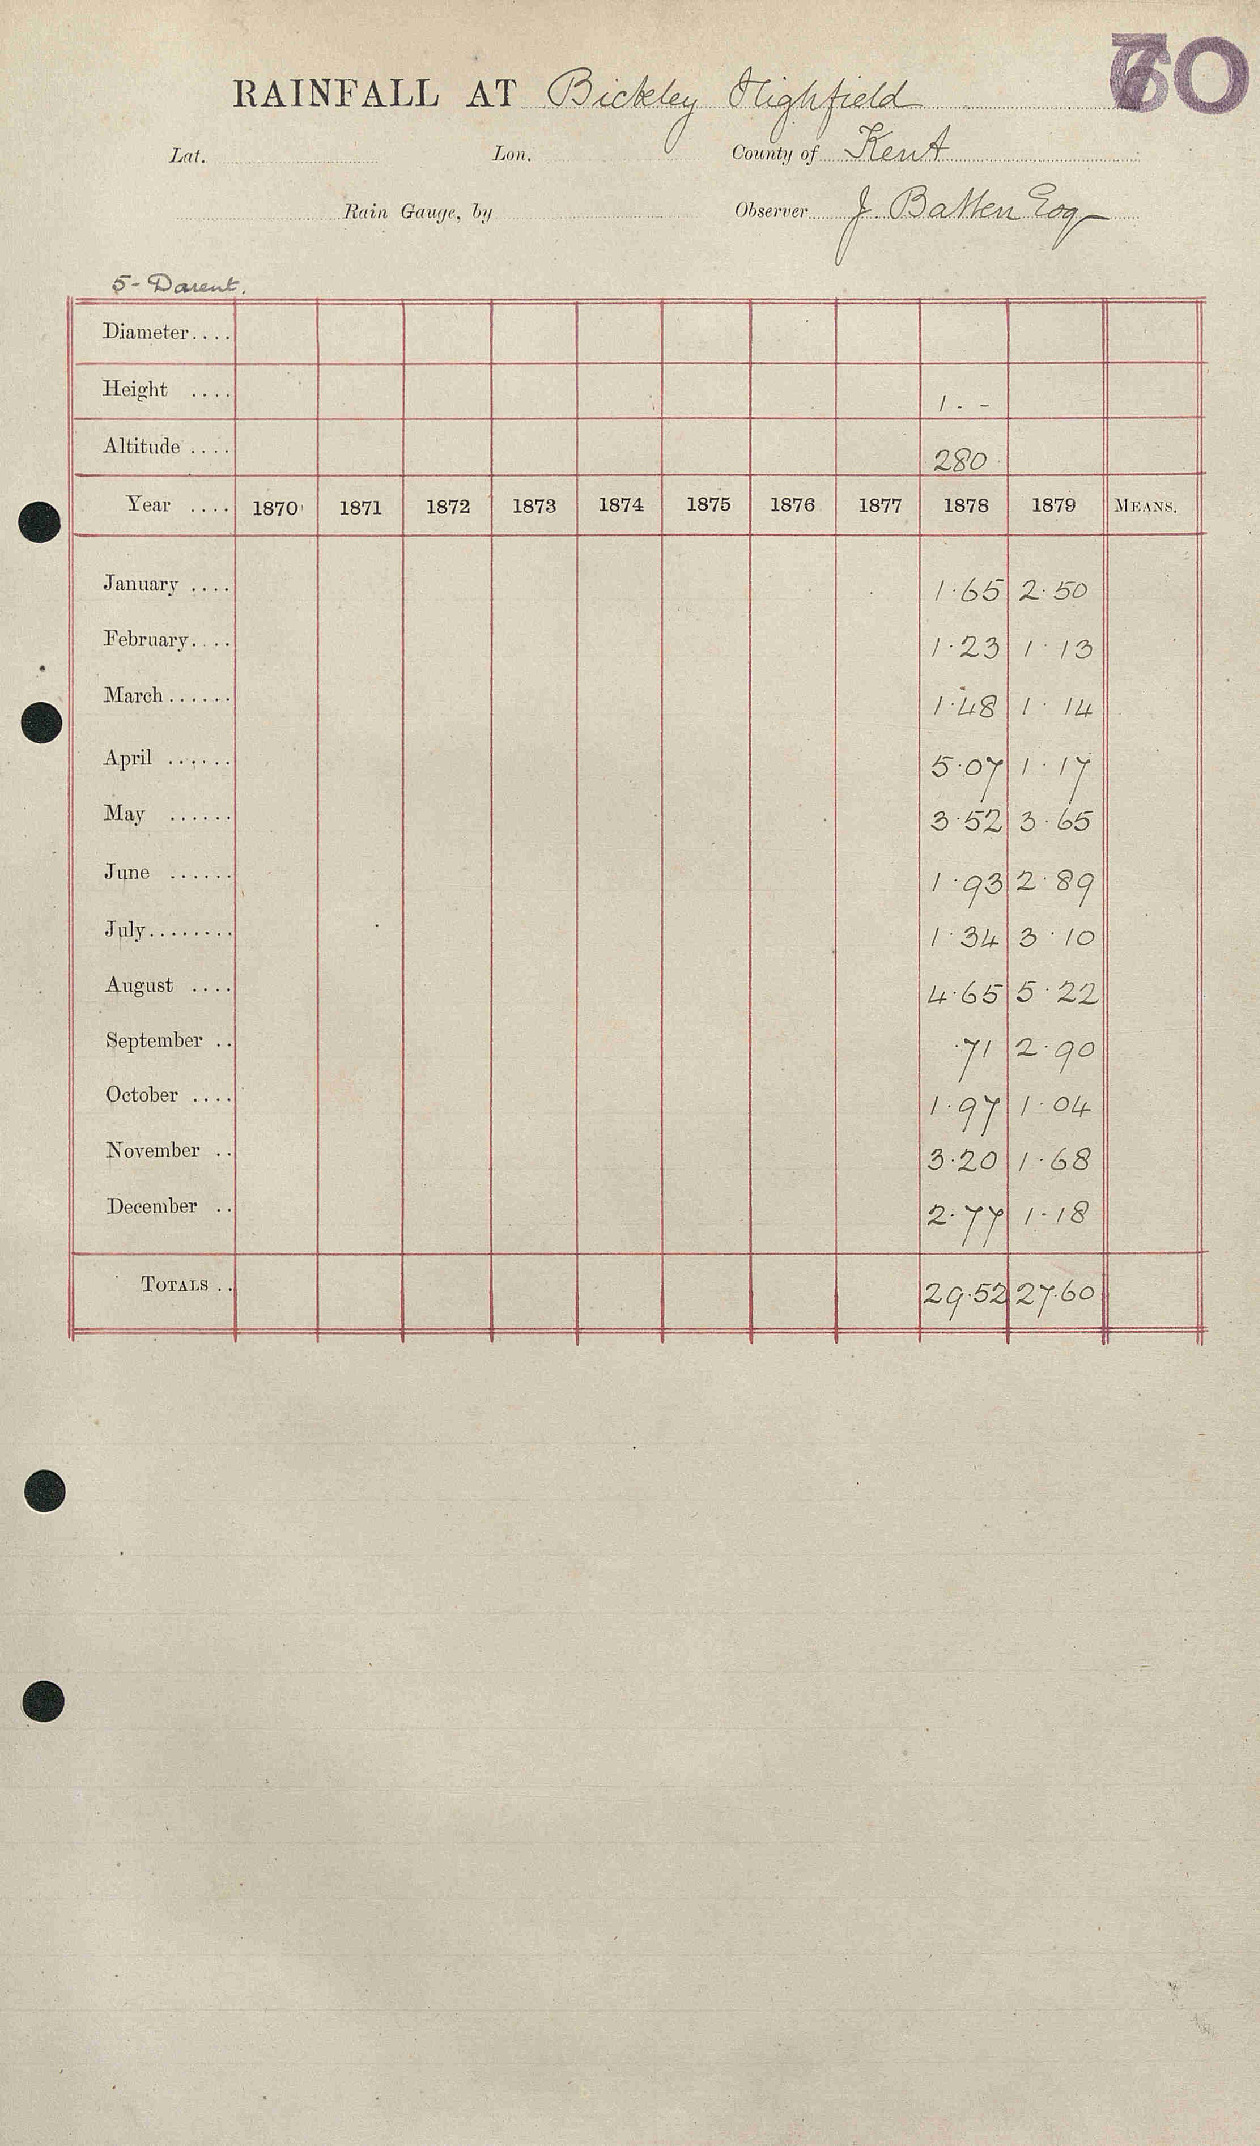 70
RAINFALL AT Bickley Highfield
Lat. Lon. County of Kent
Rain Gauge, by Observer J. Batten Esq
5 - Darent.
Diameter....
Height .... 1 . -
Altitude .... 280
Year .... 1870 1871 1872 1873 1874 1875 1876 1877 1878 1879 MEANS.
January .... 1.65 2.50
February.... 1.23 1.13
March...... 1.48 1.14
April ...... 5.07 1.17
May ...... 3.52 3.65
June ...... 1.93 2.89
July........ 1.34 3.10
August .... 4.65 5.22
September .. .71 2.90
October .... 1.97 1.04
November .. 3.20 1.68
December .. 2.77 1.18
TOTALS .. 29.52 27.60